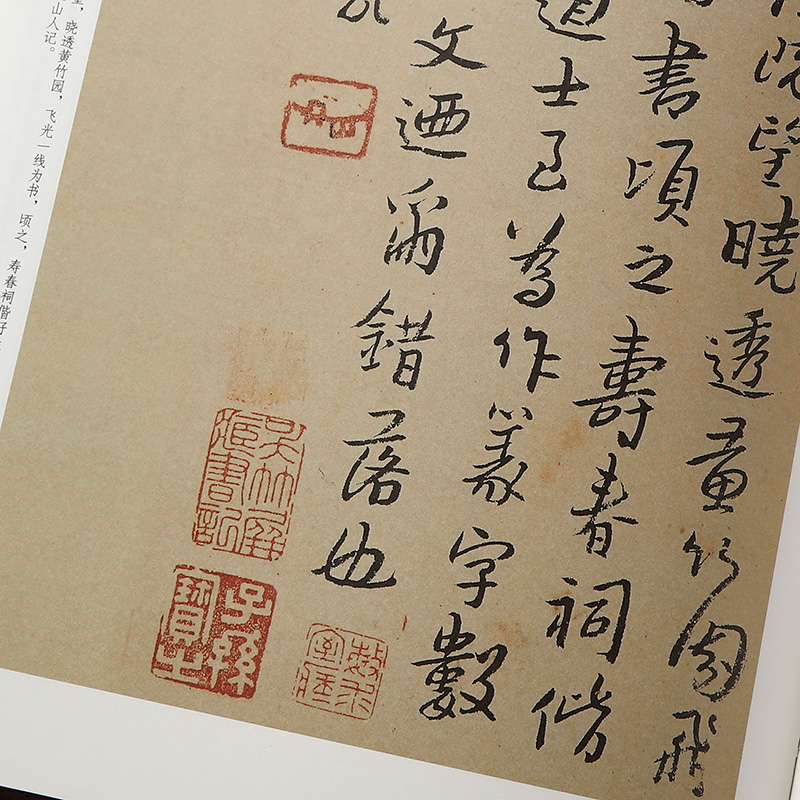 院望曉透黄竹園飛
書頃之壽春祠偕
道士已為作篆字數
文迺爾錯落也
子孫
晓透黄竹园，飞光一线为书，顷之，寿春祠偕好
山人记。